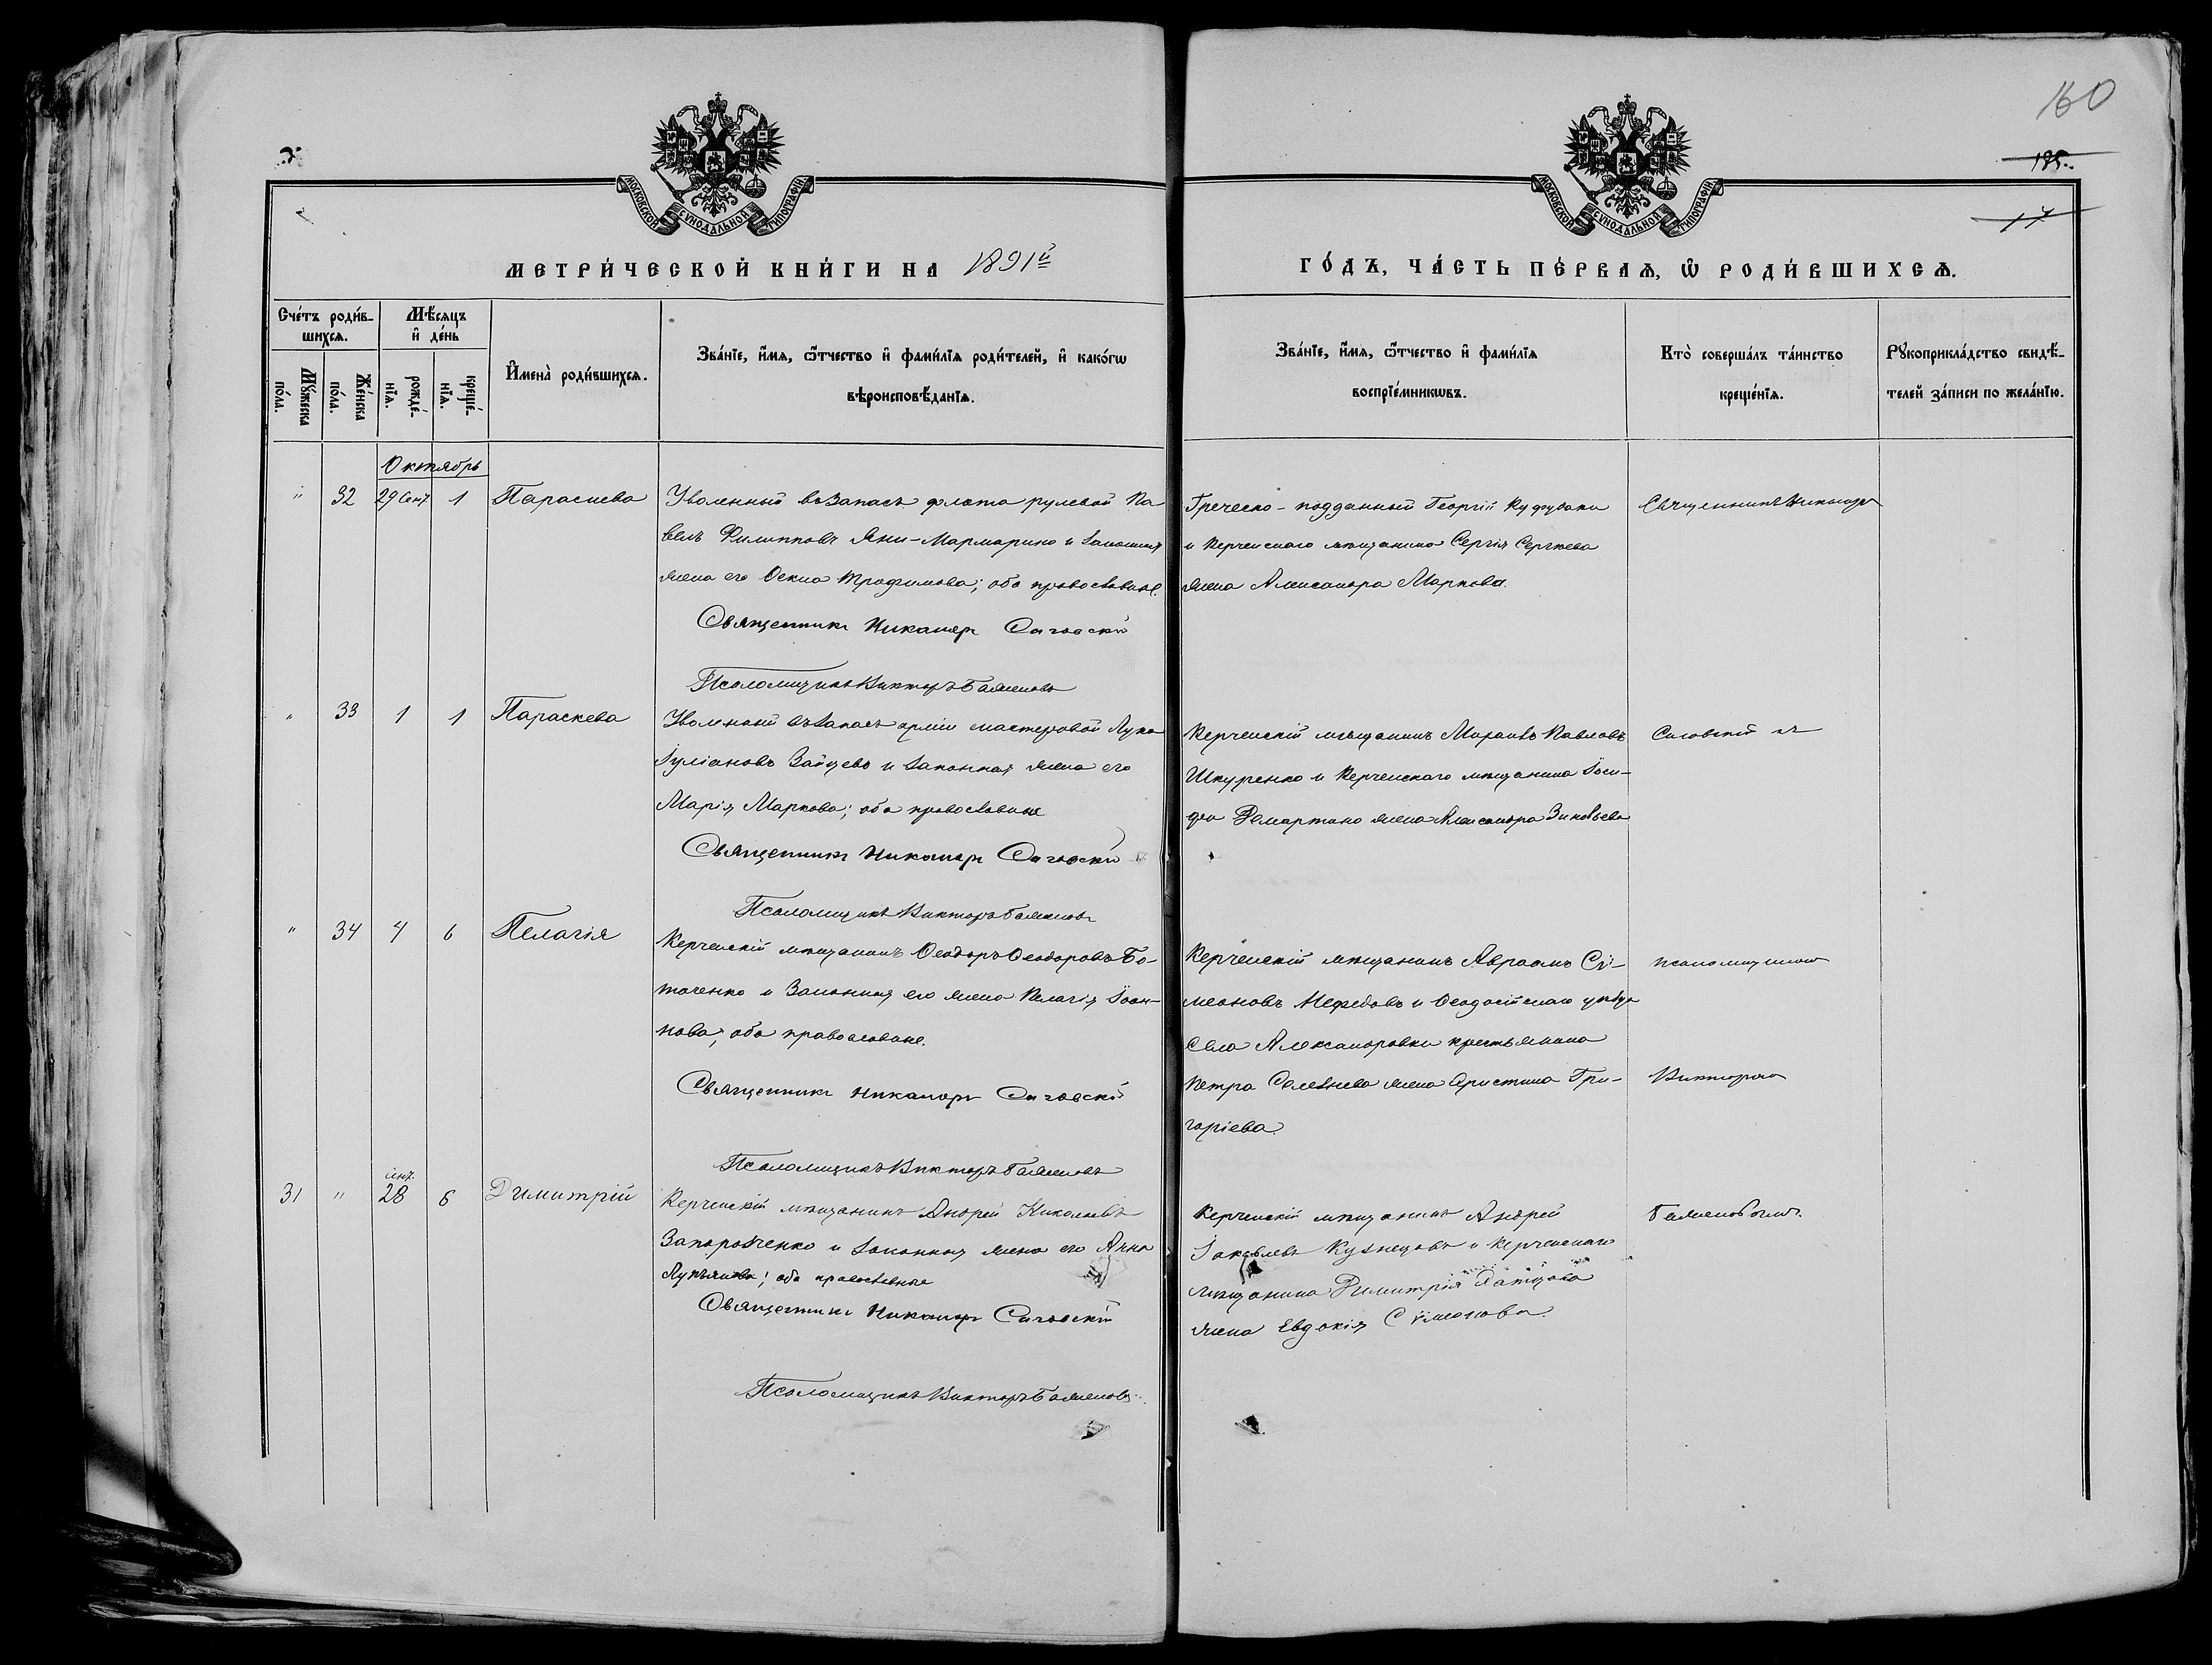 160
185.
17
МОСКОВСКОЙ СѴНОДАЛЬНОЙ ТИПОГРАФІИ
МОСКОВСКОЙ СѴНОДАЛЬНОЙ ТИПОГРАФІИ
МЕТРИ́ЧЕСКОЙ КНИ́ГИ НА 1891й
ГО́ДЪ, ЧА́СТЬ ПЕ́РВАЯ, Ѡ РОДИ́ВШИХСЯ.
Сче́тъ роди́в-
шихся.
Мѣ́сяцъ
и де́нь
Му́жеска
по́ла.
Же́нска
по́ла.
рожде́-
нїя.
креще́-
нїя.
И҆мена̀ роди́вшихся.
Зва́нїе, и҆́мя, ѻ҆́тчество и҆ фами́лїя роди́телей, и҆ како́гѡ
вѣроисповѣ́данїя.
Зва́нїе, и҆́мя, ѻ҆́тчество и҆ фами́лїя
воспрїе́мникѡвъ.
Кто̀ соверша́лъ та́инство
креще́нїя.
Рꙋкоприкла́дство свидѣ́-
телей за́писи по жела́нїю.
Октябрь
" 32 29 Сент 1 Параскева
Уволенный въ запасъ флота рулевой Па-
велъ Филипповъ Яни-Мармарино и законная
жена его Ѳекла Трофимова; оба православные.
Священникъ Никаноръ Сиговскій
Псаломщикъ Викторъ Баженовъ
Греческо-подданный Георгій
и Керченскаго мѣщанина Сергія Сергѣева
жена Александра Маркова.
Священникъ Никаноръ
" 33 1 1 Параскева
Уволенный въ запасъ арміи мастеровой Лука
Іуліановъ Зайцевъ и законная жена его
Марія Маркова; оба православные
Священникъ Никаноръ Сиговскій
Псаломщикъ Викторъ Баженовъ
Керченскій мѣщанинъ Павловъ
Шкуренко и Керченскаго мѣщанина Іоси-
фа Демартино жена Александра Зиновьева
Сиговскій съ
" 34 4 6 Пелагія
Керченскій мѣщанинъ Ѳеодоръ Ѳеодоровъ Бо-
таченко и законная его жена Пелагія Іоан-
нова; оба православные.
Священникъ Никаноръ Сиговскій
Псаломщикъ Викторъ Баженовъ
Керченскій мѣщанинъ Авраамъ Сѵ-
меоновъ Нефедовъ и Ѳеодосійскаго уѣзда
села Александровки крестьянина
Петра Селезнева жена Христина Гри-
горіева.
псаломщикомъ
Викторомъ
31 " сент. 28 6 Димитрій
Керченскій мѣщанинъ Андрей Николаевъ
Запорозченко и законная жена его Анна
Лукьянова; оба православные
Священникъ Никаноръ Сиговскій
Псаломщикъ Викторъ Баженовъ.
Керченскій мѣщанинъ Андрей
Іаковлевъ Кузнецовъ и Керченскаго
мѣщанина Димитрія
жена Евдокія Сѵмеонова.
Баженовымъ.